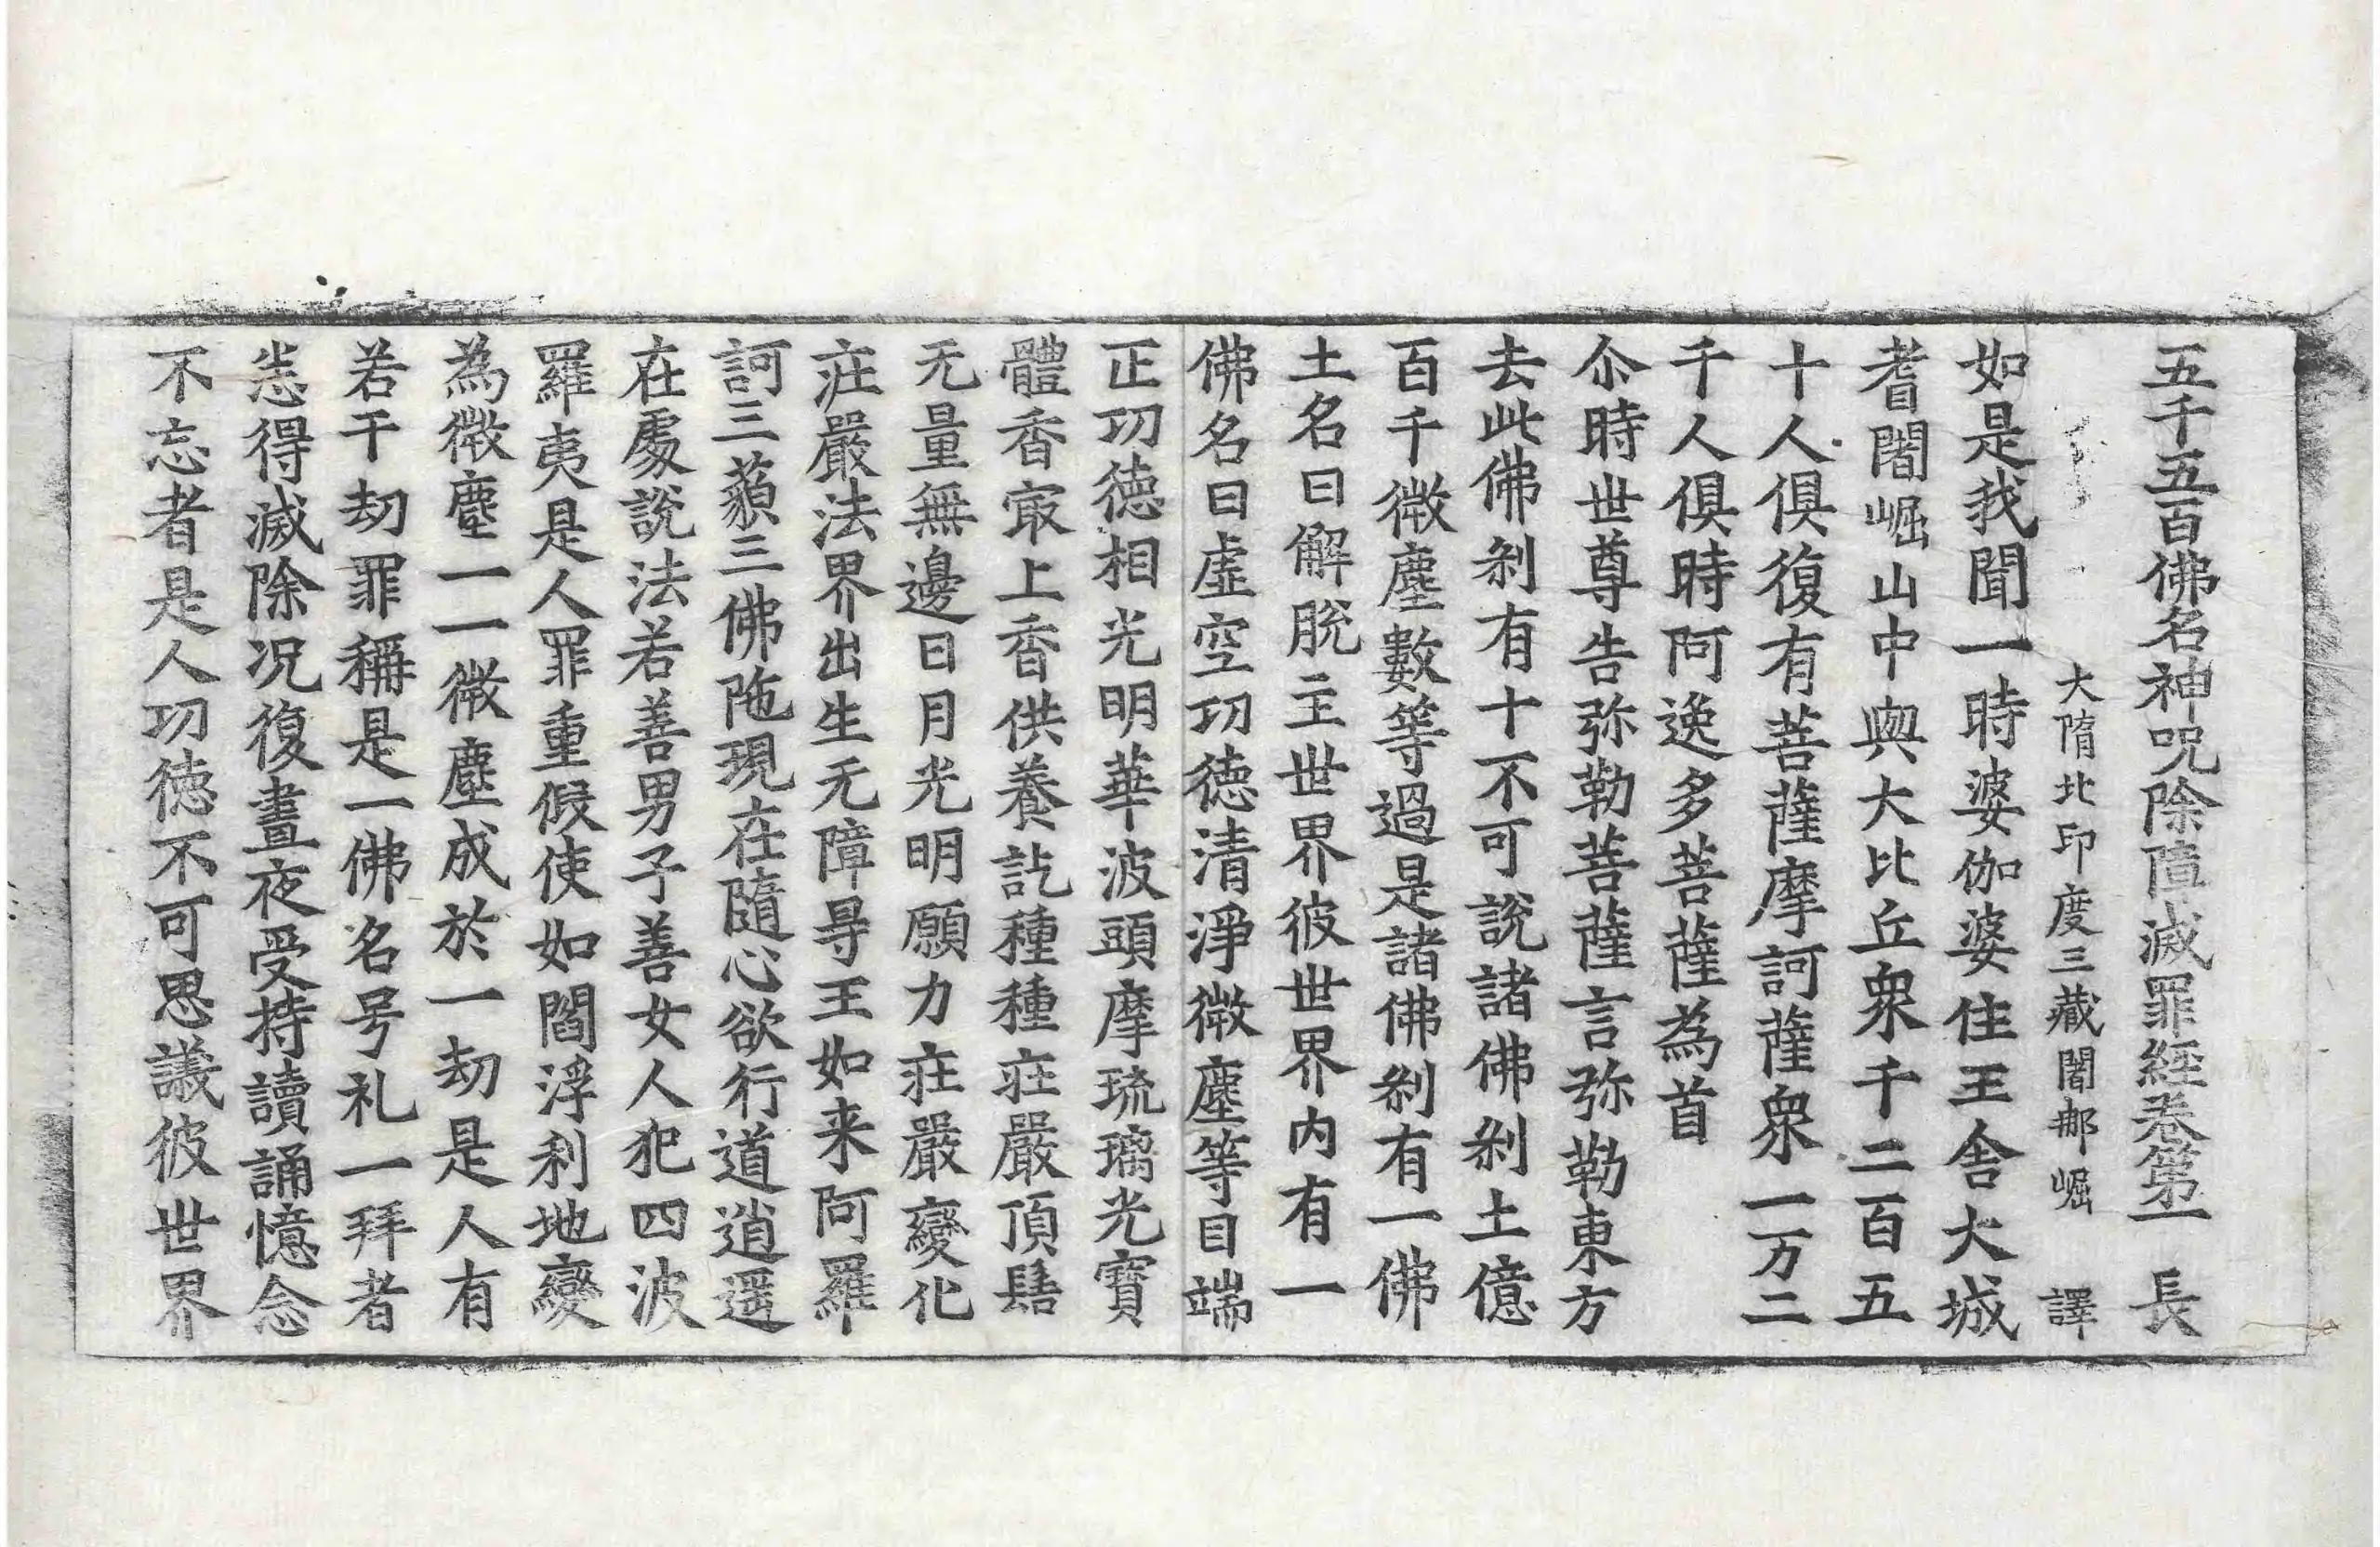 五千五百佛名神呪除障滅罪経卷第一 長
大隋北印度三藏闍那崛 譯
如是我聞一時婆伽婆住王舍大城
耆闍崛山中與大比丘衆千二百五
十人俱復有菩薩摩訶薩衆一万二
千人俱時阿逸多菩薩為首
尒時世尊告弥勒菩薩言弥勒東方
去此佛剎有十不可說諸佛剎土億
百千微塵數等過是諸佛剎有一佛
土名曰解脫主世界彼世界内有一
佛名曰虛空功德清淨微塵等目端
正功德相光明華波頭摩琉璃光寶
體香㝡上香供養訖種種莊嚴頂髻
无量無邊日月光明願力莊嚴變化
莊嚴法界出生无障㝵王如来阿羅
訶三藐三佛陁現在隨心欲行道逍遥
在處說法若善男子善女人犯四波
羅夷是人罪重假使如閻浮利地變
為微塵一一微塵成於一劫是人有
若干劫罪稱是一佛名号礼一拜者
悉得滅除况復晝夜受持讀誦憶念
不忘者是人功德不可思議彼世界